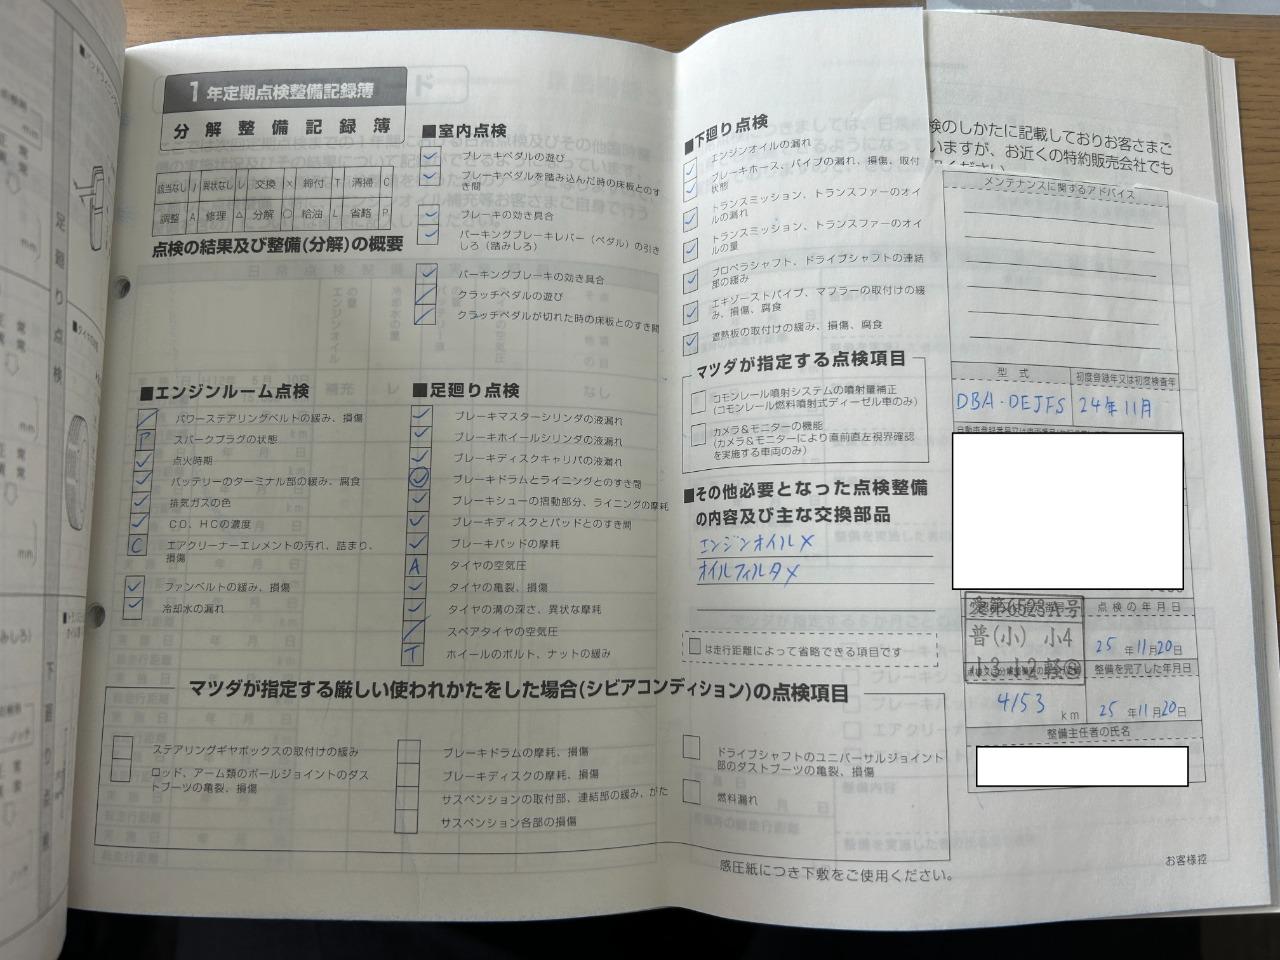 1年定期点検整備記録簿
分解整備記録簿
該当なし / 異状なし レ 交換 × 締付 T 清掃 C
調整 A 修理 △ 分解 ○ 給油 L 省略 P
点検の結果及び整備(分解)の概要
■エンジンルーム点検
パワーステアリングベルトの緩み、損傷
P スパークプラグの状態
点火時期
バッテリーのターミナル部の緩み、腐食
排気ガスの色
CO、HCの濃度
C エアクリーナーエレメントの汚れ、詰まり、
損傷
ファンベルトの緩み、損傷
冷却水の漏れ
■室内点検
ブレーキペダルの遊び
ブレーキペダルを踏み込んだ時の床板とのすき間
ブレーキの効き具合
パーキングブレーキレバー(ペダル)の引き
しろ(踏みしろ)
パーキングブレーキの効き具合
クラッチペダルの遊び
クラッチペダルが切れた時の床板とのすき間
■足廻り点検
ブレーキマスターシリンダの液漏れ
ブレーキホイールシリンダの液漏れ
ブレーキディスクキャリパの液漏れ
ブレーキドラムとライニングとのすき間
ブレーキシューの摺動部分、ライニングの摩耗
ブレーキディスクとパッドとのすき間
ブレーキパッドの摩耗
A タイヤの空気圧
タイヤの亀裂、損傷
タイヤの溝の深さ、異状な摩耗
スペアタイヤの空気圧
T ホイールのボルト、ナットの緩み
■下廻り点検
エンジンオイルの漏れ
ブレーキホース、パイプの漏れ、損傷、取付
状態
トランスミッション、トランスファーのオイ
ルの漏れ
トランスミッション、トランスファーのオイ
ルの量
プロペラシャフト、ドライブシャフトの連結
部の緩み
エキゾーストパイプ、マフラーの取付けの緩
み、損傷、腐食
遮熱板の取付けの緩み、損傷、腐食
マツダが指定する点検項目
コモンレール噴射システムの噴射量補正
(コモンレール燃料噴射式ディーゼル車のみ)
カメラ&モニターの機能
(カメラ&モニターにより直前直左視界確認
を実施する車両のみ)
■その他必要となった点検整備
の内容及び主な交換部品
エンジンオイル×
オイルフィルタ×
は走行距離によって省略できる項目です
マツダが指定する厳しい使われかたをした場合(シビアコンディション)の点検項目
ステアリングギヤボックスの取付けの緩み
ロッド、アーム類のボールジョイントのダス
トブーツの亀裂、損傷
ブレーキドラムの摩耗、損傷
ブレーキディスクの摩耗、損傷
サスペンションの取付部、連結部の緩み、がた
サスペンション各部の損傷
ドライブシャフトのユニバーサルジョイント
部のダストブーツの亀裂、損傷
燃料漏れ
感圧紙につき下敷をご使用ください。
検のしかたに記載しておりお客さまご
いますが、お近くの特約販売会社でも
メンテナンスに関するアドバイス
型式 初度登録年又は初度検査年
DBA-DEJFS 24年11月
愛第6523A号
普(小) 小4
点検の年月日
25年11月20日
整備を完了した年月日
4153 km 25年11月20日
整備主任者の氏名
お客様控
足廻り点検
下廻り点検